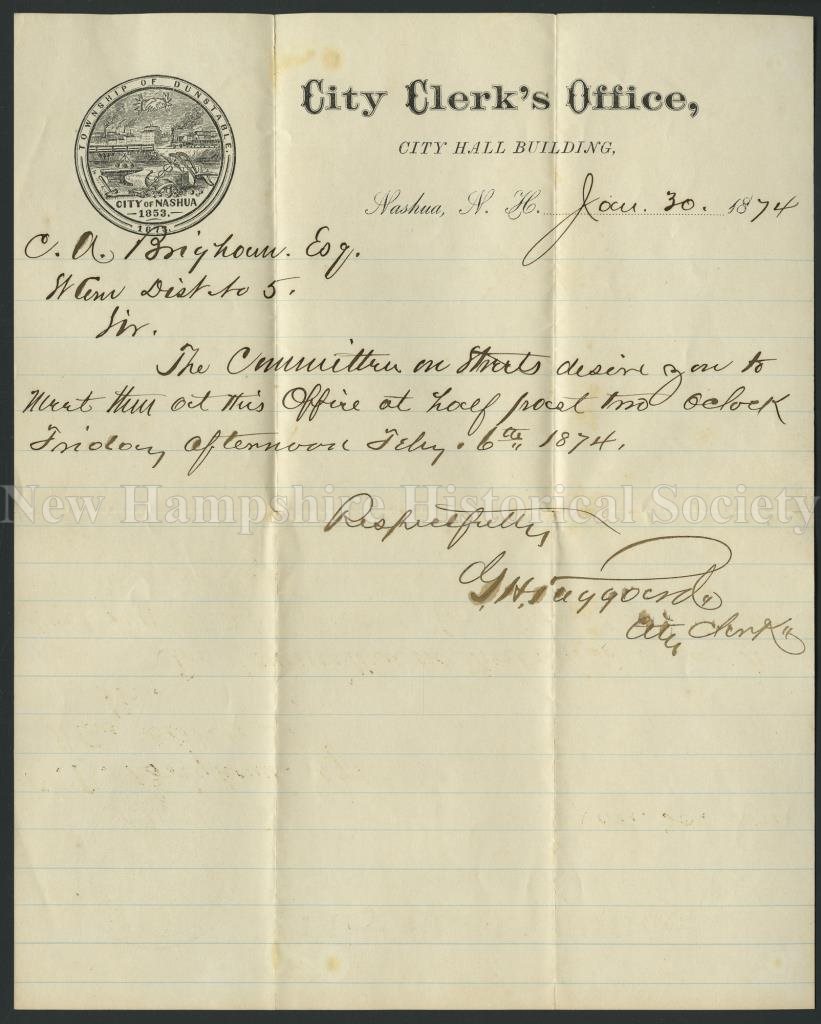 TOWNSHIP OF DUNSTABLE.
CITY OF NASHUA
—1853.—
1673.
City Clerk's Office,
CITY HALL BUILDING,
Nashua, N. H. Jan. 30. 1874
C. A. Brigham. Esq.
St Com Dist No 5.
Sir.
The Committee on Streets desire you to
Meet them at this Office at half past two oclock
Friday afternoon Feby. 6th 1874.
New Hampshire Historical Society
Respectfully
G. H. Taggard
City Clerk